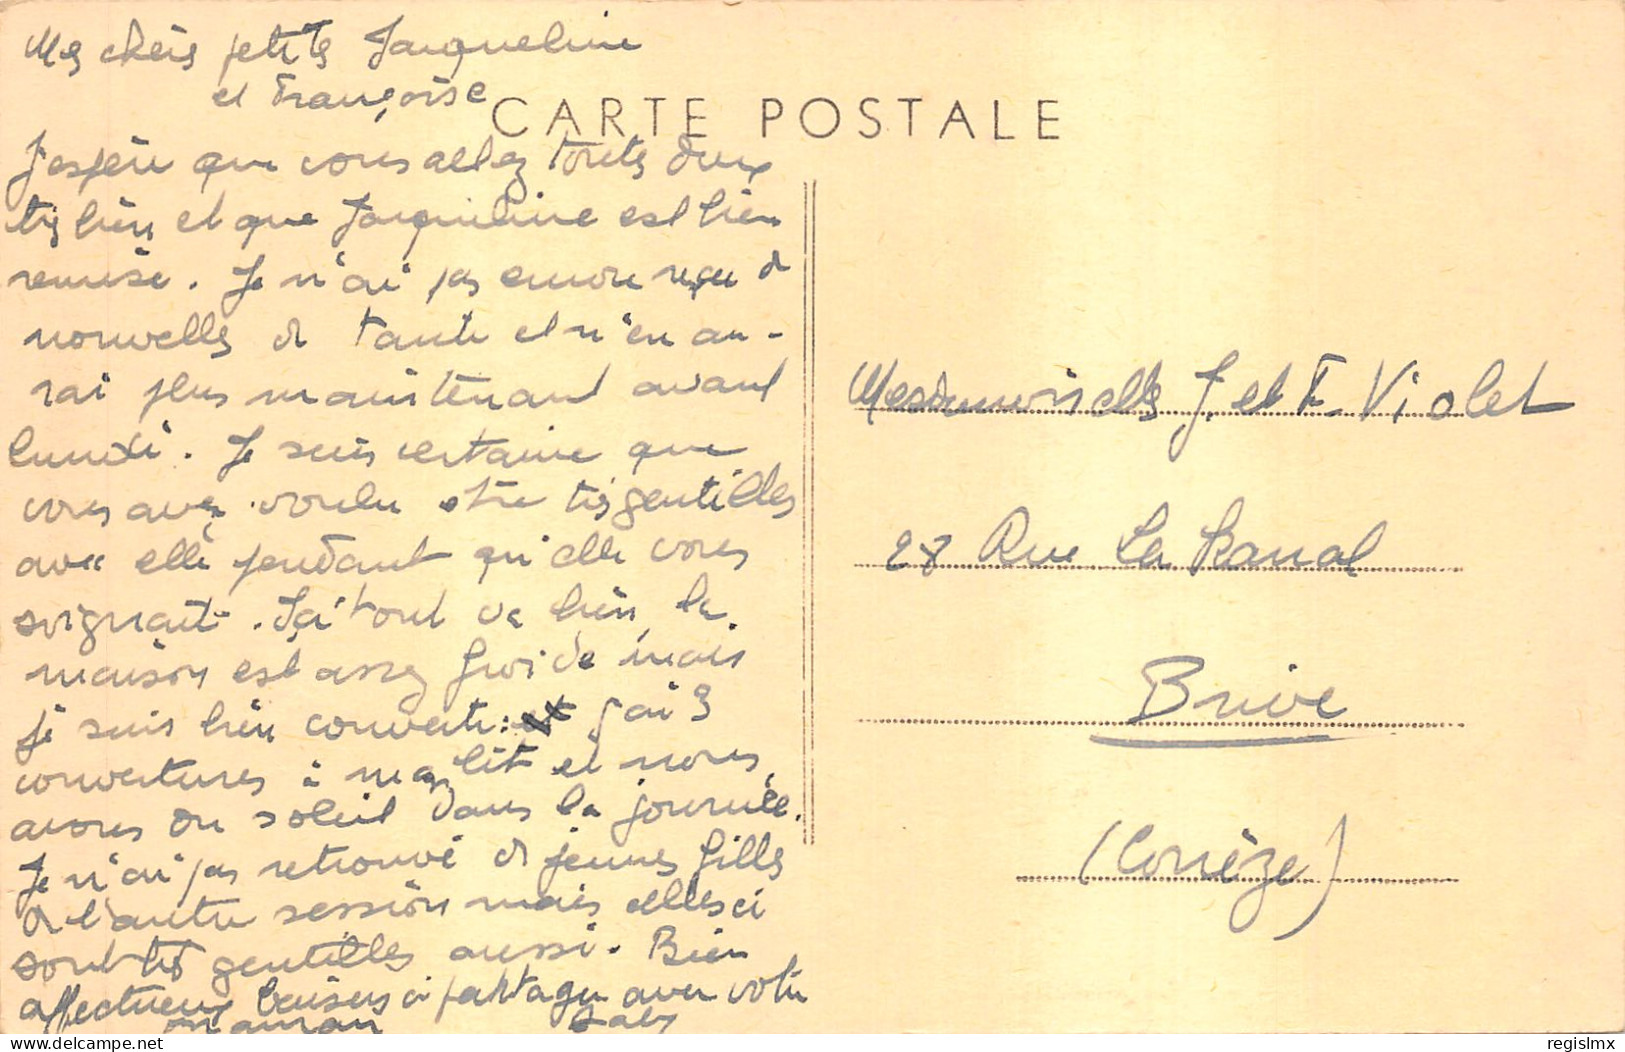 Mes chères petites Jacqueline
et Françoise
CARTE POSTALE
J'espère que vous allez toutes deux
très bien et que Jacqueline est bien
remise. Je n'ai pas encore reçu de
nouvelles de Tante et n'en au-
rai plus maintenant avant
lundi. Je suis certaine que
vous avez voulu être très gentilles
avec elle pendant qu'elle vous
soignait. Ici tout va bien, la
maison est assez froide mais
je suis bien couverte: j'ai 3
couvertures à mon lit et nous
avons du soleil dans la journée.
Je n'ai pas retrouvé de jeunes filles
de l'autre session mais celles ci
sont très gentilles aussi. Bien
affectueux baisers à partager avec votre
maman
Mesdemoiselles J. et F. Violet
28 Rue La
Brive
(Corrèze)
delcampe.net
regislmx